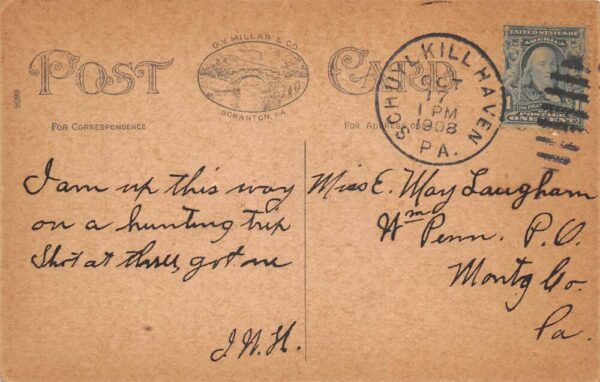 POST CARD
G.V. MILLAR & CO.
SCRANTON, PA.
FOR CORRESPONDENCE
FOR ADDRESS ONLY
SCHUYLKILL HAVEN
OCT
17
1 PM
1908
PA.
1 1
POSTAGE
ONE CENT
I am up this way
on a hunting trip
Shot at three, got one
J. N. H.
Miss E. May Laugham
Wm Penn. P.O.
Montg Co.
Pa.